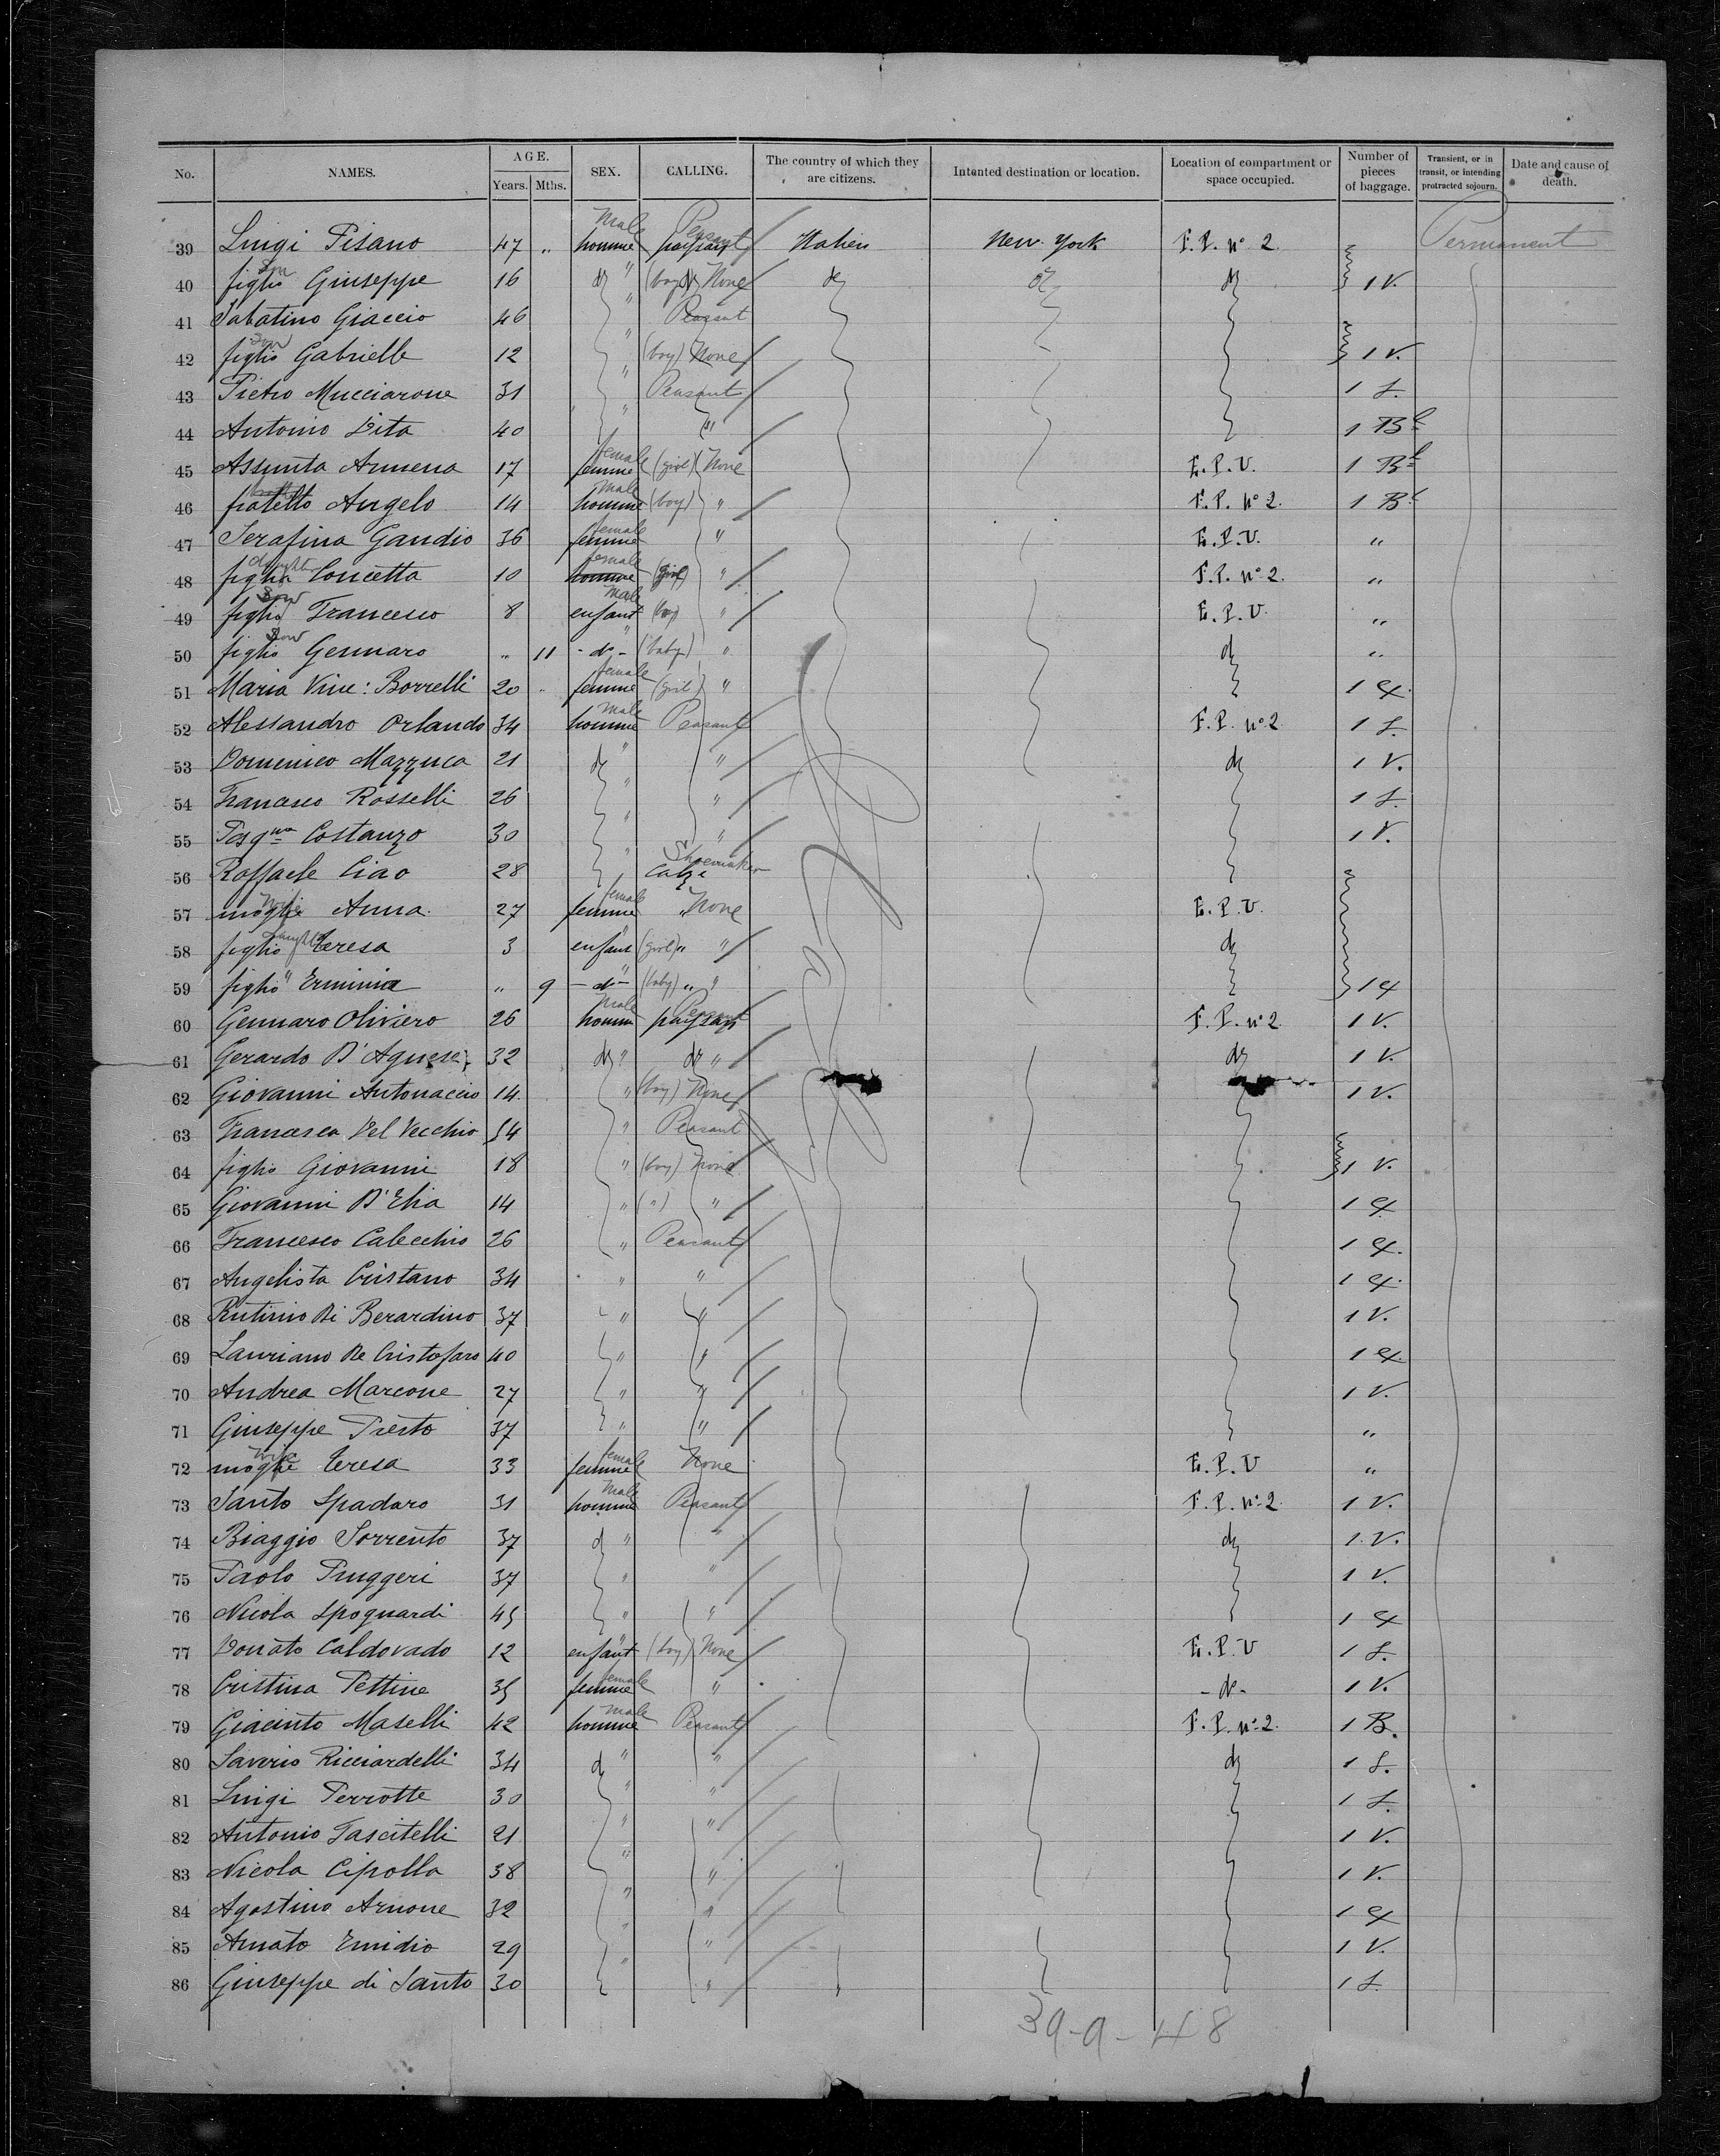 No. NAMES. AGE. Years. Mths. SEX. CALLING. The country of which they are citizens. Intented destination or location. Location of compartment or space occupied. Number of pieces of baggage. Transient, or in transit, or intending protracted sojourn. Date and cause of death.
39 Luigi Pisano 47 " Male homme Peasant paysan Italien New-York F.P. nº 2. Permanent
40 figlio Son Giuseppe 16 do " (boy) None do do do 1 V.
41 Sabatino Giaccio 46 " Peasant
42 figlio Son Gabrielle 12 " (boy) None 1 V.
43 Pietro Mucciarone 31 " Peasant 1 S.
44 Antonio Vita 40 " " 1 Bl
45 Assunta Armena 17 female femme (girl) None E.P.V. 1 Bl
46 fratello Angelo 14 Male homme (boy) " F.P. nº 2. 1 Bl
47 Serafina Gaudio 36 female femme " E.P.V. "
48 figlia daughter Concetta 10 female homme (girl) " F.P. nº 2. "
49 figlio Son Francesco 8 Male enfant (boy) " E.P.V. "
50 figlio Son Gennaro " 11 - do - " (baby) " do "
51 Maria Vinc: Borrelli 20 " female femme (girl) " 1 C.
52 Alessandro Orlando 34 Male homme Peasant F.P. nº 2. 1 S.
53 Domenico Mazzuca 21 do " " do 1 V.
54 Francesco Rosselli 26 " " 1 S.
55 Pasqle Costanzo 30 " " 1 V.
56 Raffaele Ciao 28 " Shoemaker Calz.
57 moglie Wife Anna 27 female femme " None E.P.V.
58 figlia daughter Teresa 3 enfant " (girl) " " do
59 figlia " Erminia " 9 - do - " (baby) " " 1 C
60 Gennaro Oliviero 26 Male homme Peasant paysan F.P. nº 2. 1 V.
61 Gerardo D'Agnese 32 do " do " do 1 V.
62 Giovanni Antonaccio 14 " (boy) None 1 V.
63 Francesco Del Vecchio 54 " Peasant
64 figlio Giovanni 18 " (boy) None 1 V.
65 Giovanni D'Elia 14 " (") " 1 C
66 Francesco Calecchio 26 " Peasant 1 C.
67 Angelista Cristano 34 " " 1 C.
68 Rutinio Di Berardino 37 " " 1 V.
69 Lauriano De Cristofaro 40 " " 1 C
70 Andrea Marcone 27 " " 1 V.
71 Giuseppe Presto 37 " " "
72 moglie Wife Teresa 33 female femme None E.P.V "
73 Santo Spadaro 31 Male homme Peasant F.P. nº 2. 1 V.
74 Biaggio Sorrento 37 do " " do 1 V.
75 Paolo Pruggeri 37 " " 1 V.
76 Nicola Spognardi 45 " " 1 C
77 Donato Caldovado 12 enfant " (boy) None E.P.V 1 S.
78 Cristina Pettine 35 female femme " - do - 1 V.
79 Giacinto Maselli 42 Male homme Peasant F.P. nº 2. 1 B.
80 Saverio Ricciardelli 34 do " " do 1 S.
81 Luigi Perrotte 30 " " 1 S.
82 Antonio Fascitelli 21 " " 1 V.
83 Nicola Cipolla 38 " " 1 V.
84 Agostino Arnone 32 " " 1 C
85 Amato Emidio 29 " " 1 V.
86 Giuseppe di Santo 30 " " 1 S.
39-9-48